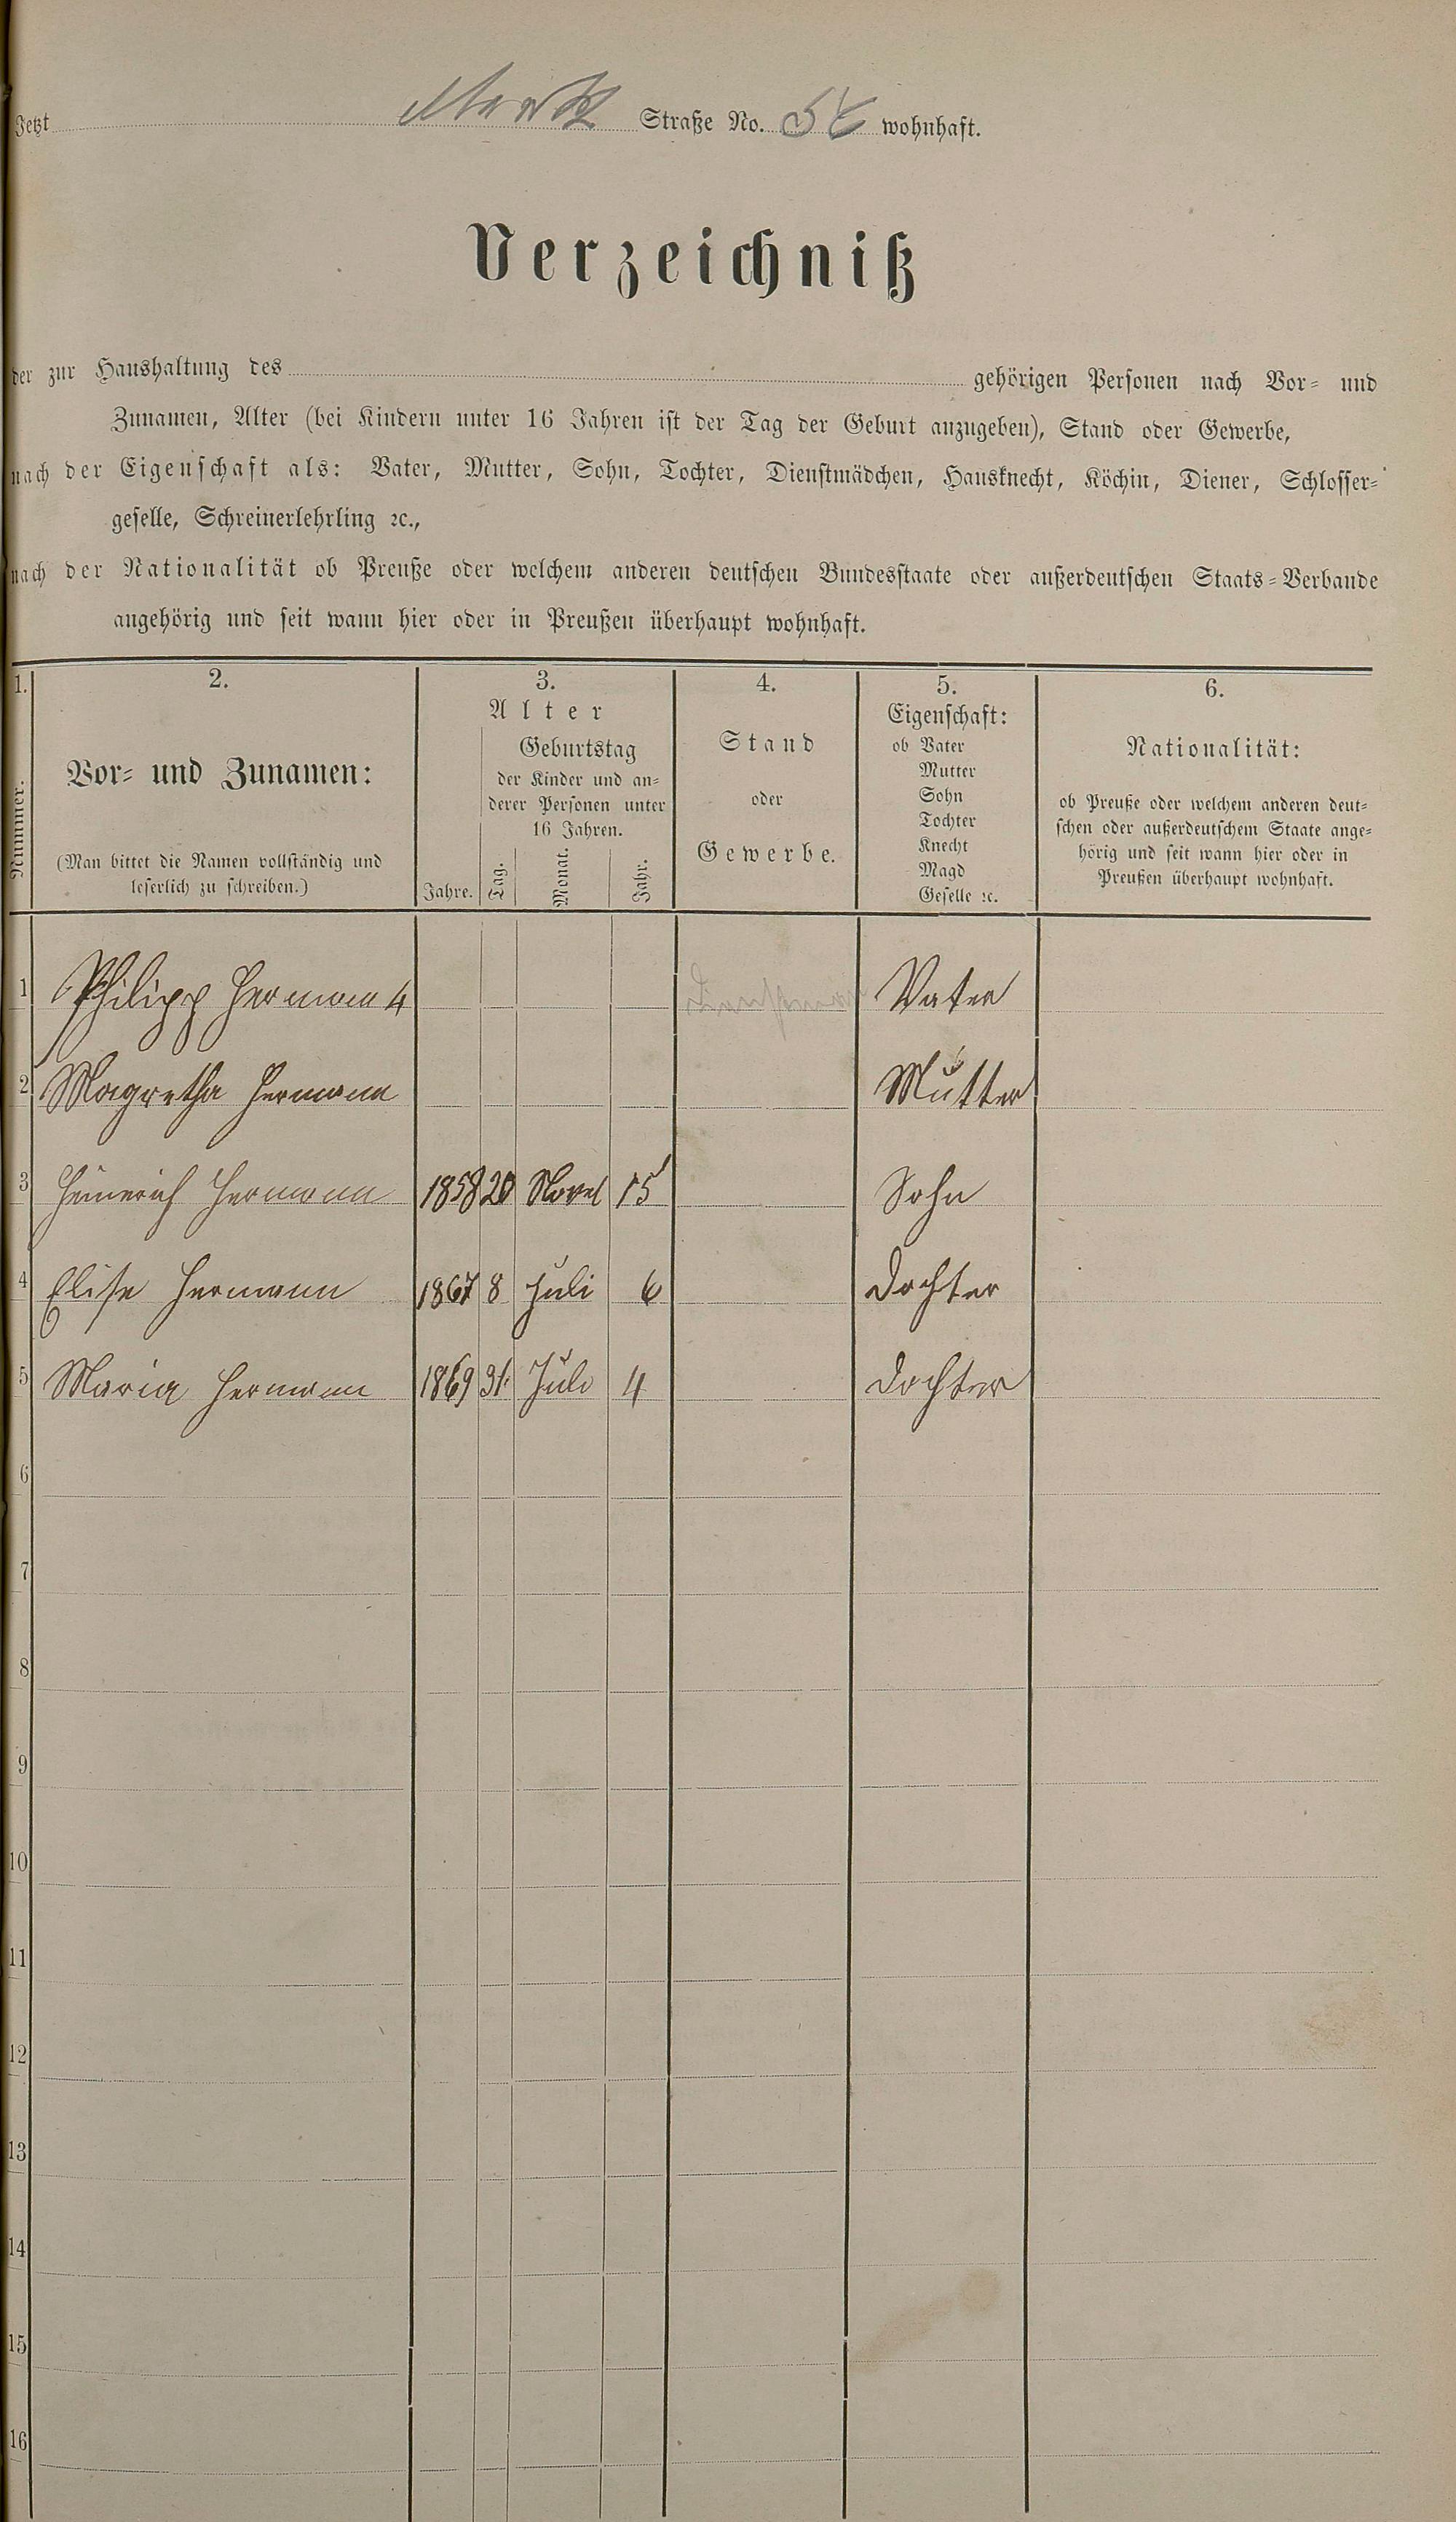 Jetzt Markt Straße No. 56 wohnhaft.
Verzeichniß
der zur Haushaltung des gehörigen Personen nach Vor- und
Zunamen, Alter (bei Kindern unter 16 Jahren ist der Tag der Geburt anzugeben), Stand oder Gewerbe,
nach der Eigenschaft als: Vater, Mutter, Sohn, Tochter, Dienstmädchen, Hausknecht, Köchin, Diener, Schlosser-
geselle, Schreinerlehrling ꝛc.,
nach der Nationalität ob Preuße oder welchem anderen deutschen Bundesstaate oder außerdeutschen Staats-Verbande
angehörig und seit wann hier oder in Preußen überhaupt wohnhaft.
1. 2. 3. 4. 5. 6.
Nummer.
Vor- und Zunamen:
(Man bittet die Namen vollständig und
leserlich zu schreiben.)
Alter
Geburtstag
der Kinder und an-
derer Personen unter
16 Jahren.
Jahre. Tag. Monat. Jahr.
Stand
oder
Gewerbe.
Eigenschaft:
ob Vater
Mutter
Sohn
Tochter
Knecht
Magd
Geselle ꝛc.
Nationalität:
ob Preuße oder welchem anderen deut-
schen oder außerdeutschem Staate ange-
hörig und seit wann hier oder in
Preußen überhaupt wohnhaft.
1 Philipp Hermann 4 Vater
2 Magretha Hermann Mutter
3 Heinerich Hermann 1858 20 Novel 15 Sohn
4 Elise Hermann 1867 8 Juli 6 Dochter
5 Maria Hermann 1869 31. Juli 4 Dochter
6
7
8
9
10
11
12
13
14
15
16